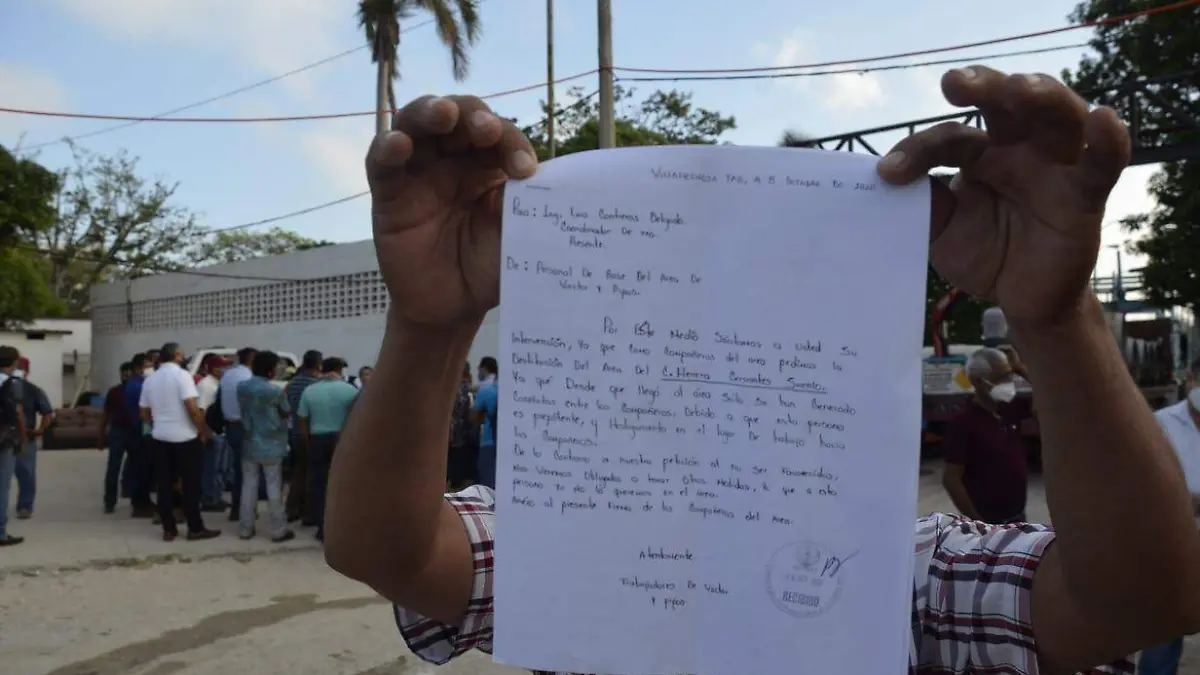 Villahermosa Tab, A 8 Octubre De 2020
Para: Ing. Luis Contreras Delgado
Coordinador De
Presente
De: Personal De Base Del Area De
Vactor Y Pipas.
Por Este Medio Solicitamos a Usted Su
Intervención, Ya que como Compañeros del area pedimos la
Destitución Del Area Del C. Herrera Cervantes
Ya qué Desde que llegó al área Solo Se han Generado
Conflictos entre los Compañeros, Debido a que esta persona
es prepotente, y Hostigamiento en el lugar De trabajo hacia
los Compañeros.
De lo Contrario a nuestra petición al no Ser Favorecidos,
Nos Veremos Obligados a tomar Otras Medidas, Ya que a esta
persona Ya no la queremos en el área.
Anexo al presente Firmas de los Compañeros del Area.
Atentamente
Trabajadores De Vactor
Y pipas
RECIBIDO